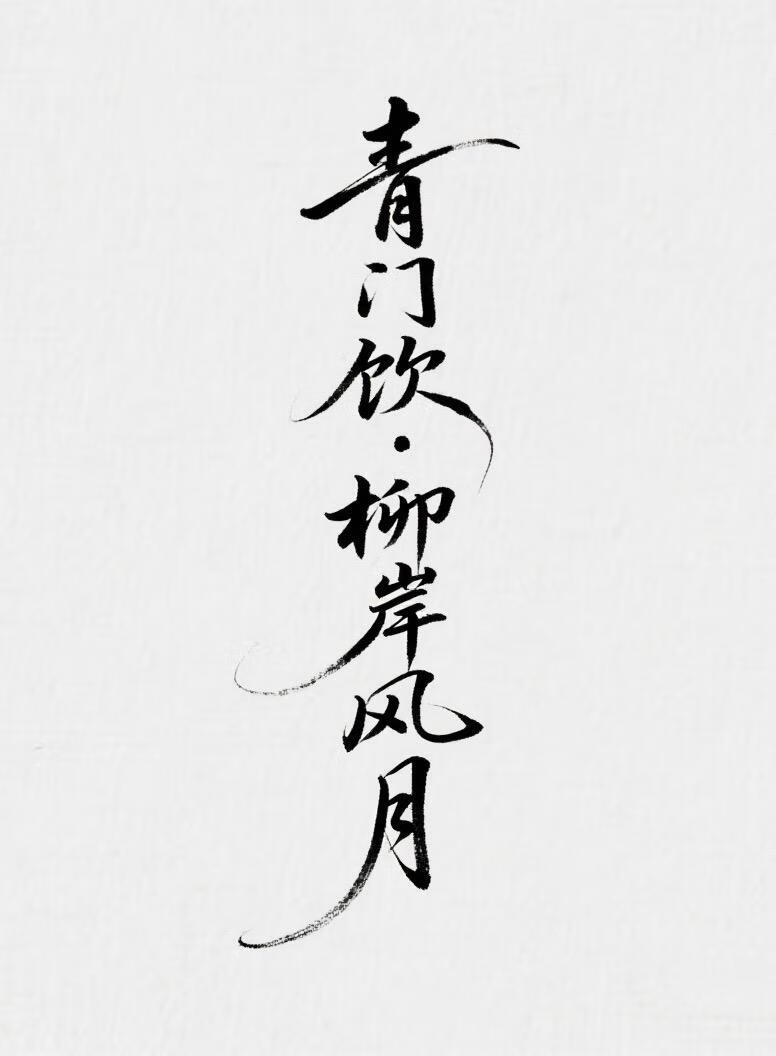 青门饮·柳岸风月